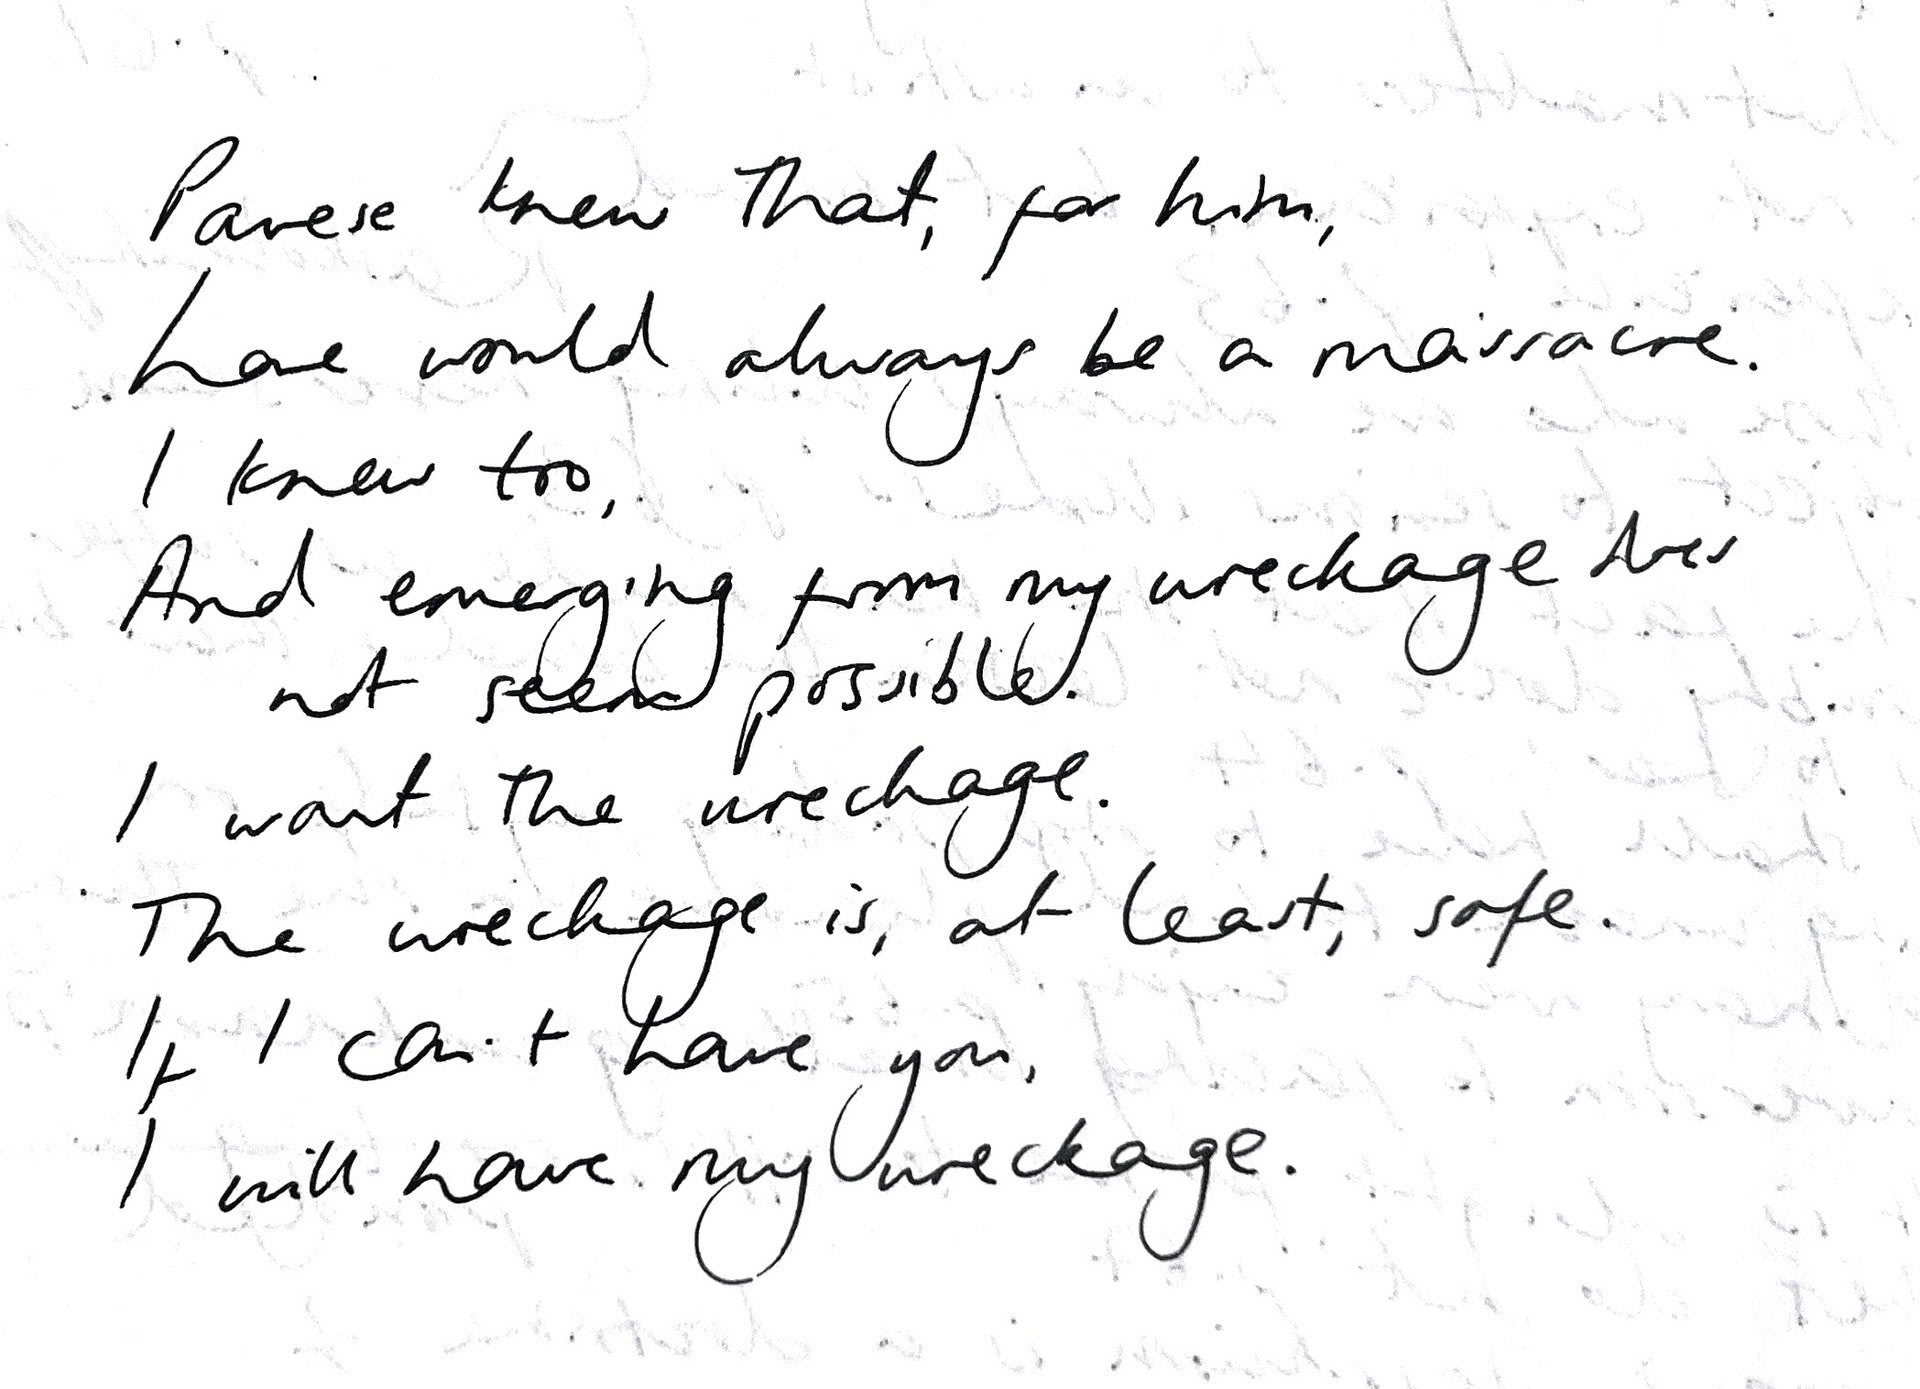 Pavese knew that, for him,
Love would always be a massacre.
I knew too,
And emerging from my wreckage does
not seem possible.
I want the wreckage.
The wreckage is, at least, safe.
If I can't have you,
I will have my wreckage.